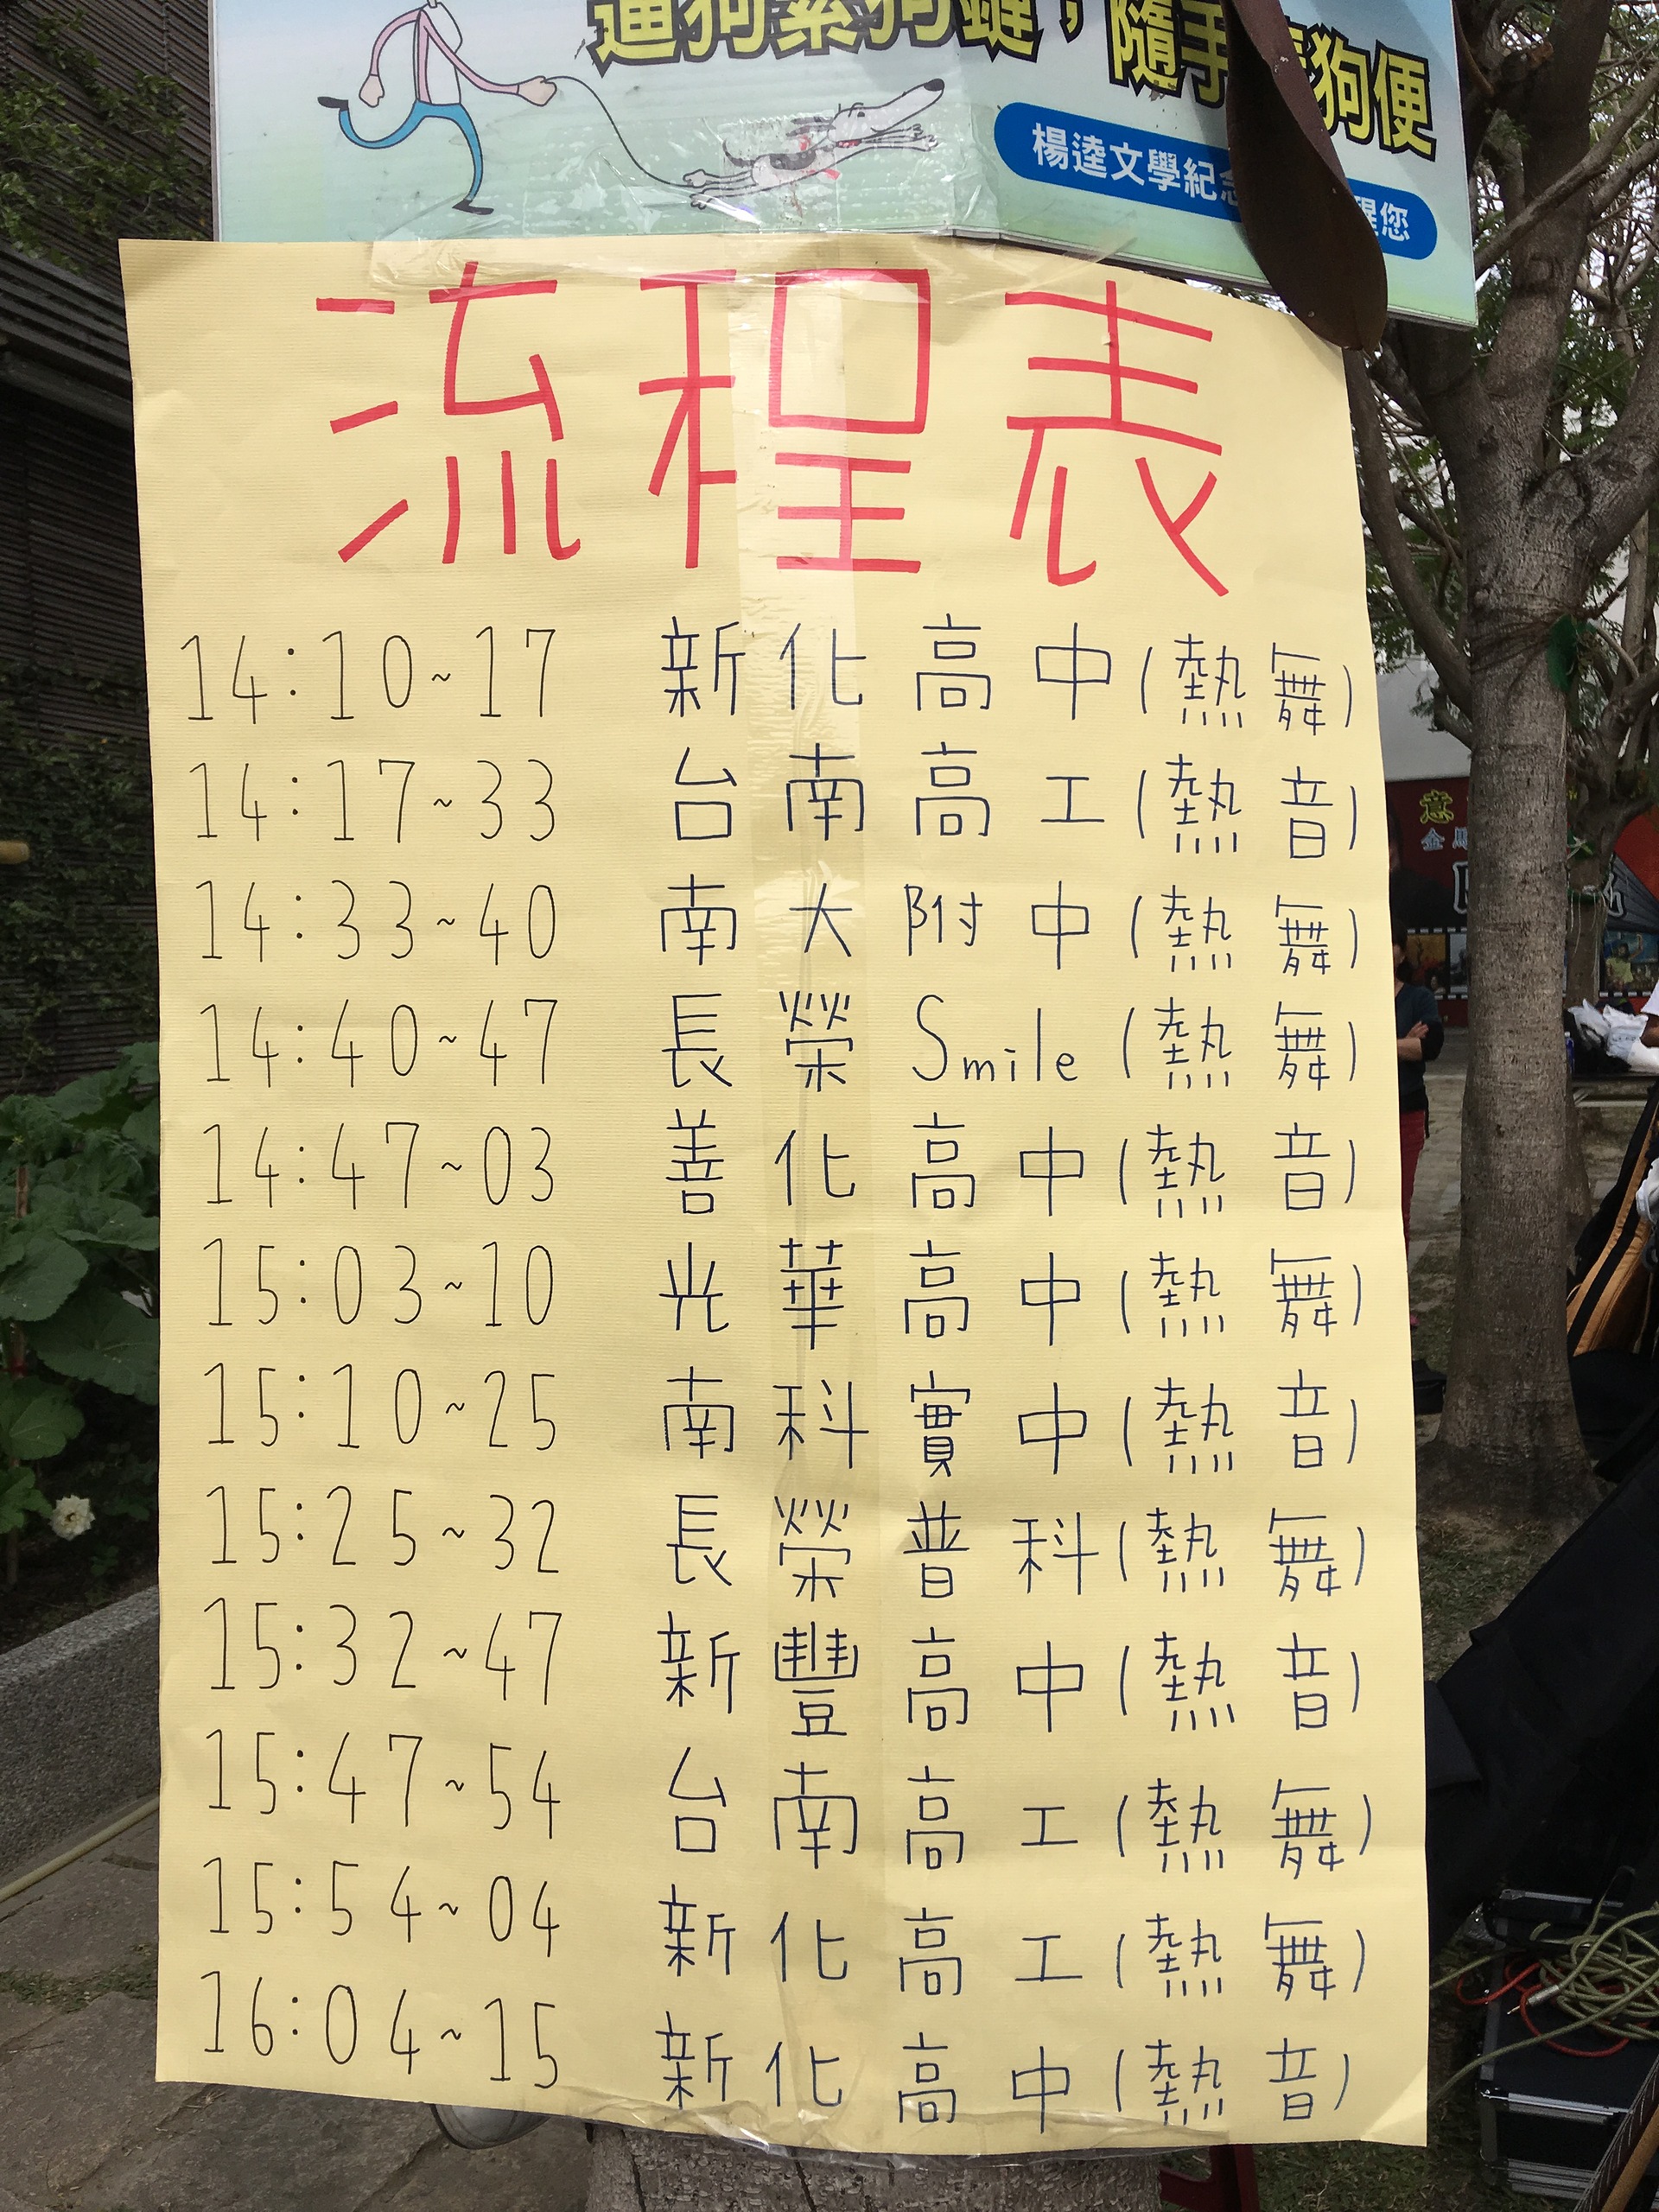 遛狗繫狗鏈，隨手清狗便
楊逵文學紀念 提醒您
流程表
14:10~17 新化高中(熱舞)
14:17~33 台南高工(熱音)
14:33~40 南大附中(熱舞)
14:40~47 長榮Smile(熱舞)
14:47~03 善化高中(熱音)
15:03~10 光華高中(熱舞)
15:10~25 南科實中(熱音)
15:25~32 長榮普科(熱舞)
15:32~47 新豐高中(熱音)
15:47~54 台南高工(熱舞)
15:54~04 新化高工(熱舞)
16:04~15 新化高中(熱音)
意
金馬